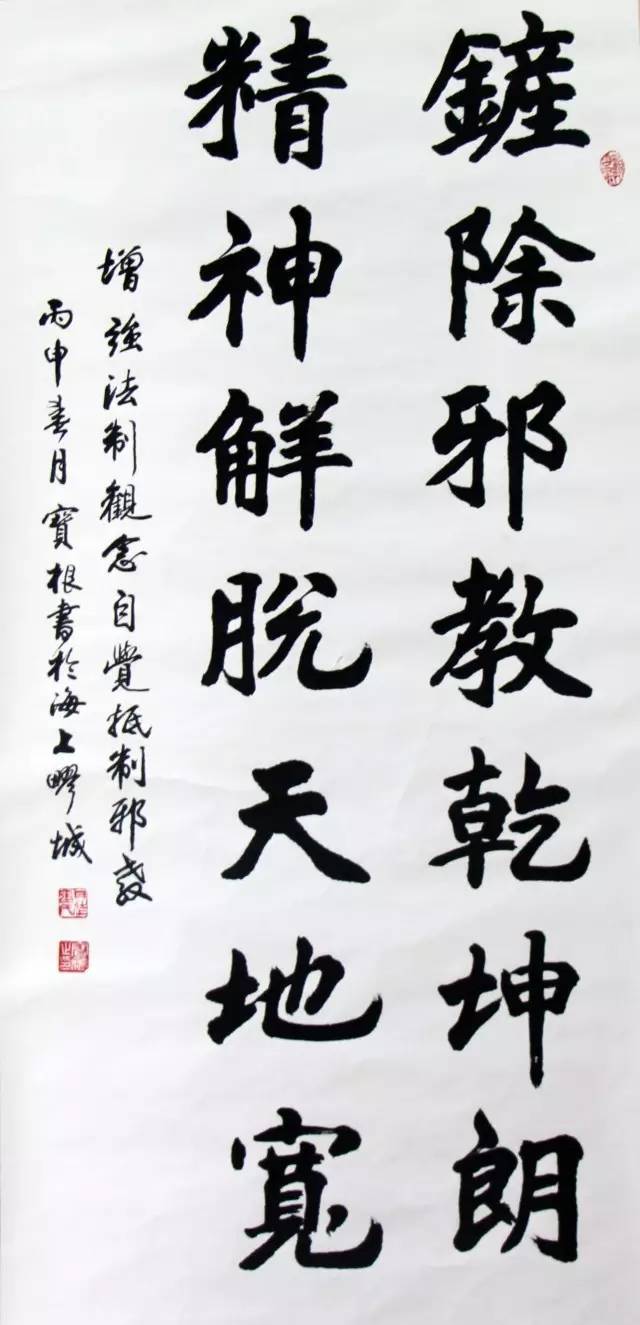 鏟除邪教乾坤朗
精神解脫天地寬
增強法制觀念自覺抵制邪教
丙申春月寶根書於海上疁城